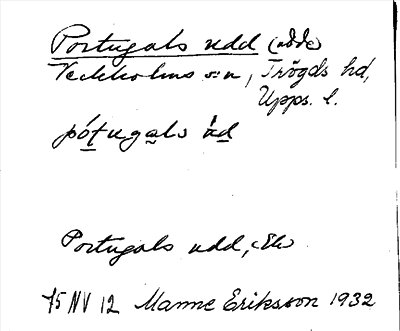 Portugals udd (udde)
Veckholms s:n, Trögds hd,
Upps. l.
pó̱ṯuga̱ls ùḏ
Portugals udd,
75 NV 12 Manne Eriksson 1932